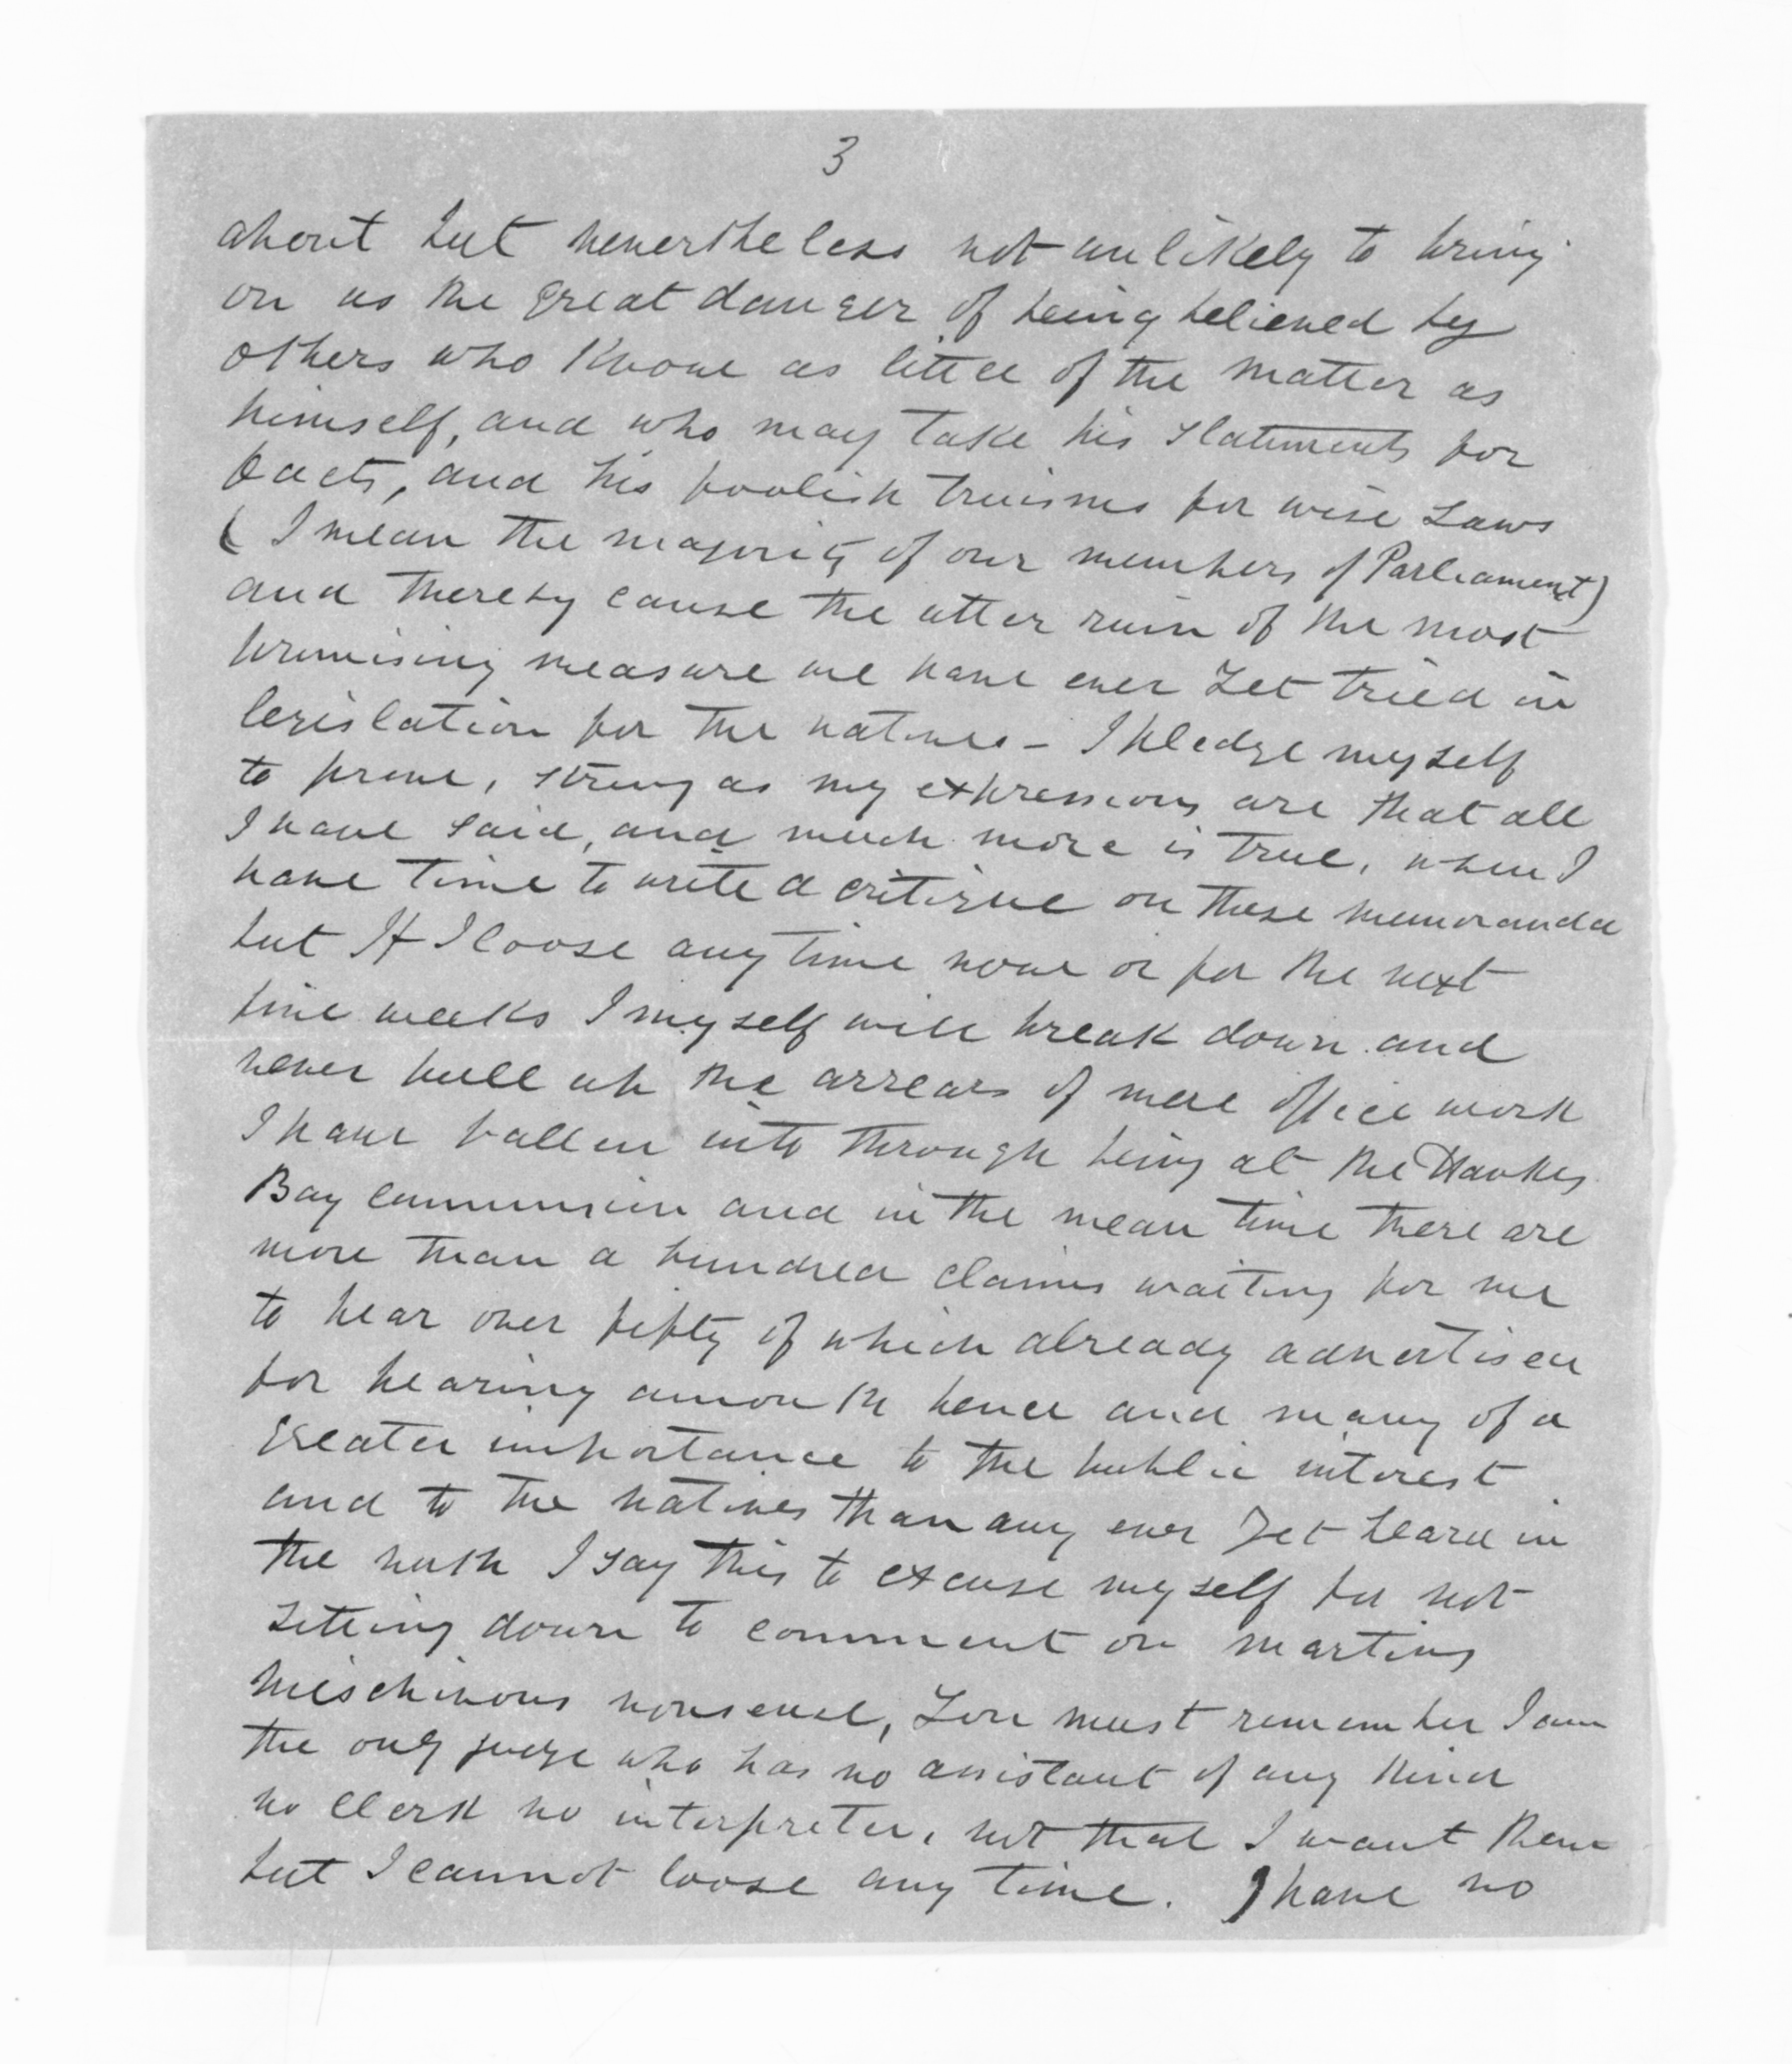 3
about but nevertheless not unlikely to bring
on us the great danger of being believed by
others who know as little of the matter as
himself, and who may take his statements for
facts, and his foolish truisms for wise Laws
( I mean the majority of our members of Parliament)
and thereby cause the utter ruin of the most
promising measure we have ever Yet tried in
legislation for the natives - I pledge myself
to prove, strong as my expressions are that all
I have said, and much more is true, when I
have time to write a critique on these memoranda
but If I loose any time now or for the next
five weeks I myself will break down and
never pull up the arrears of mere office work
I have fallen into through being at the Hawkes
Bay Commission and in the mean time there are
more than a hundred claims waiting for me
to hear over fifty of which already advertised
for hearing a month hence and many of a
greater importance to the public interest
and to the natives than any ever Yet heard in
the north I say this to excuse myself for not
sitting down to comment on martins
mischivous nonsense, You must remember I am
the only judge who has no assistant of any kind
no Clerk no interpreter, not that I want them
but I cannot loose any time. I have no